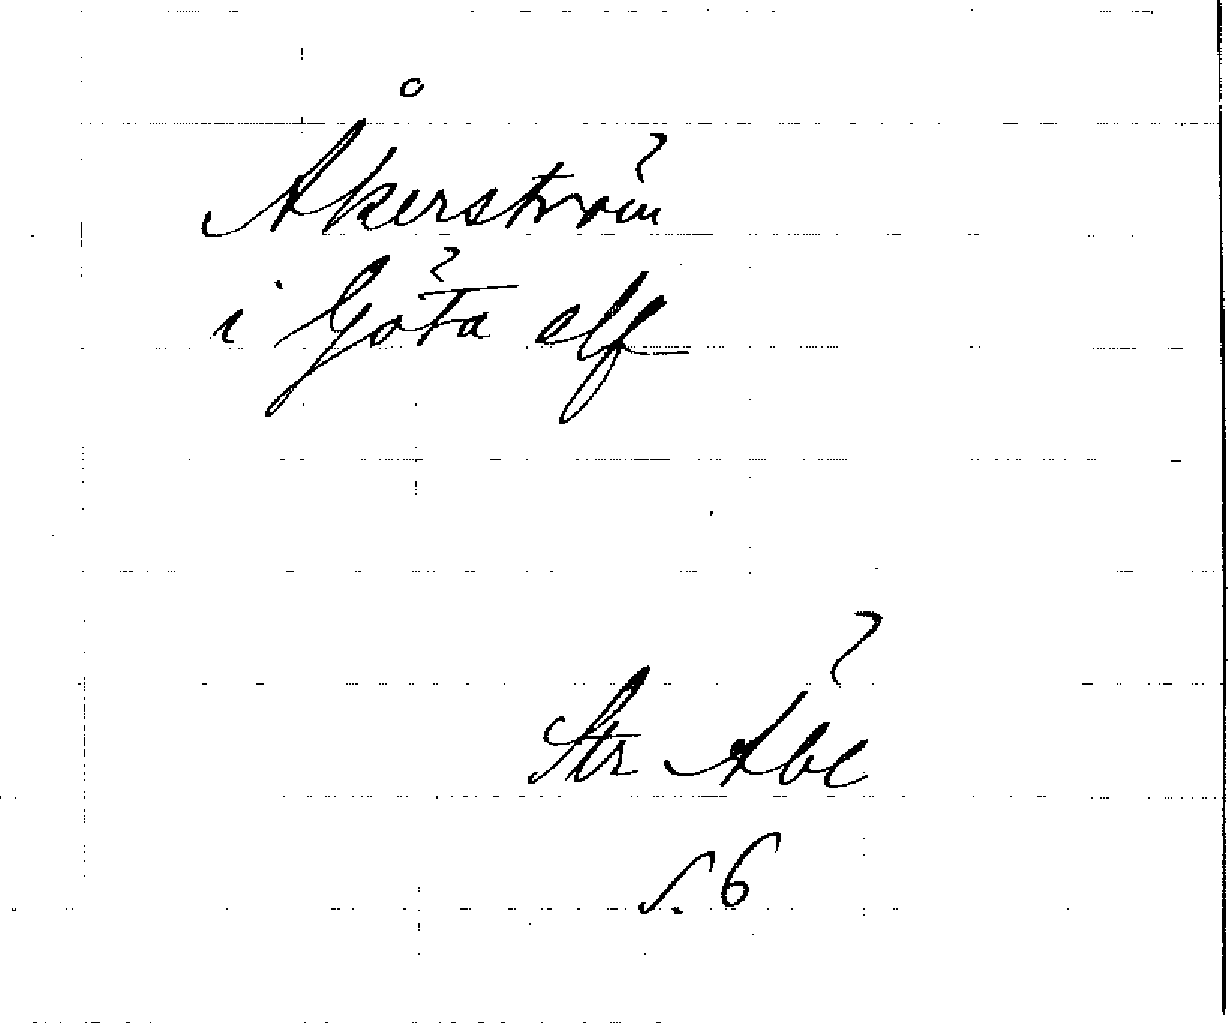 Åkerström
i Göta elf
Str Äbl
s. 6